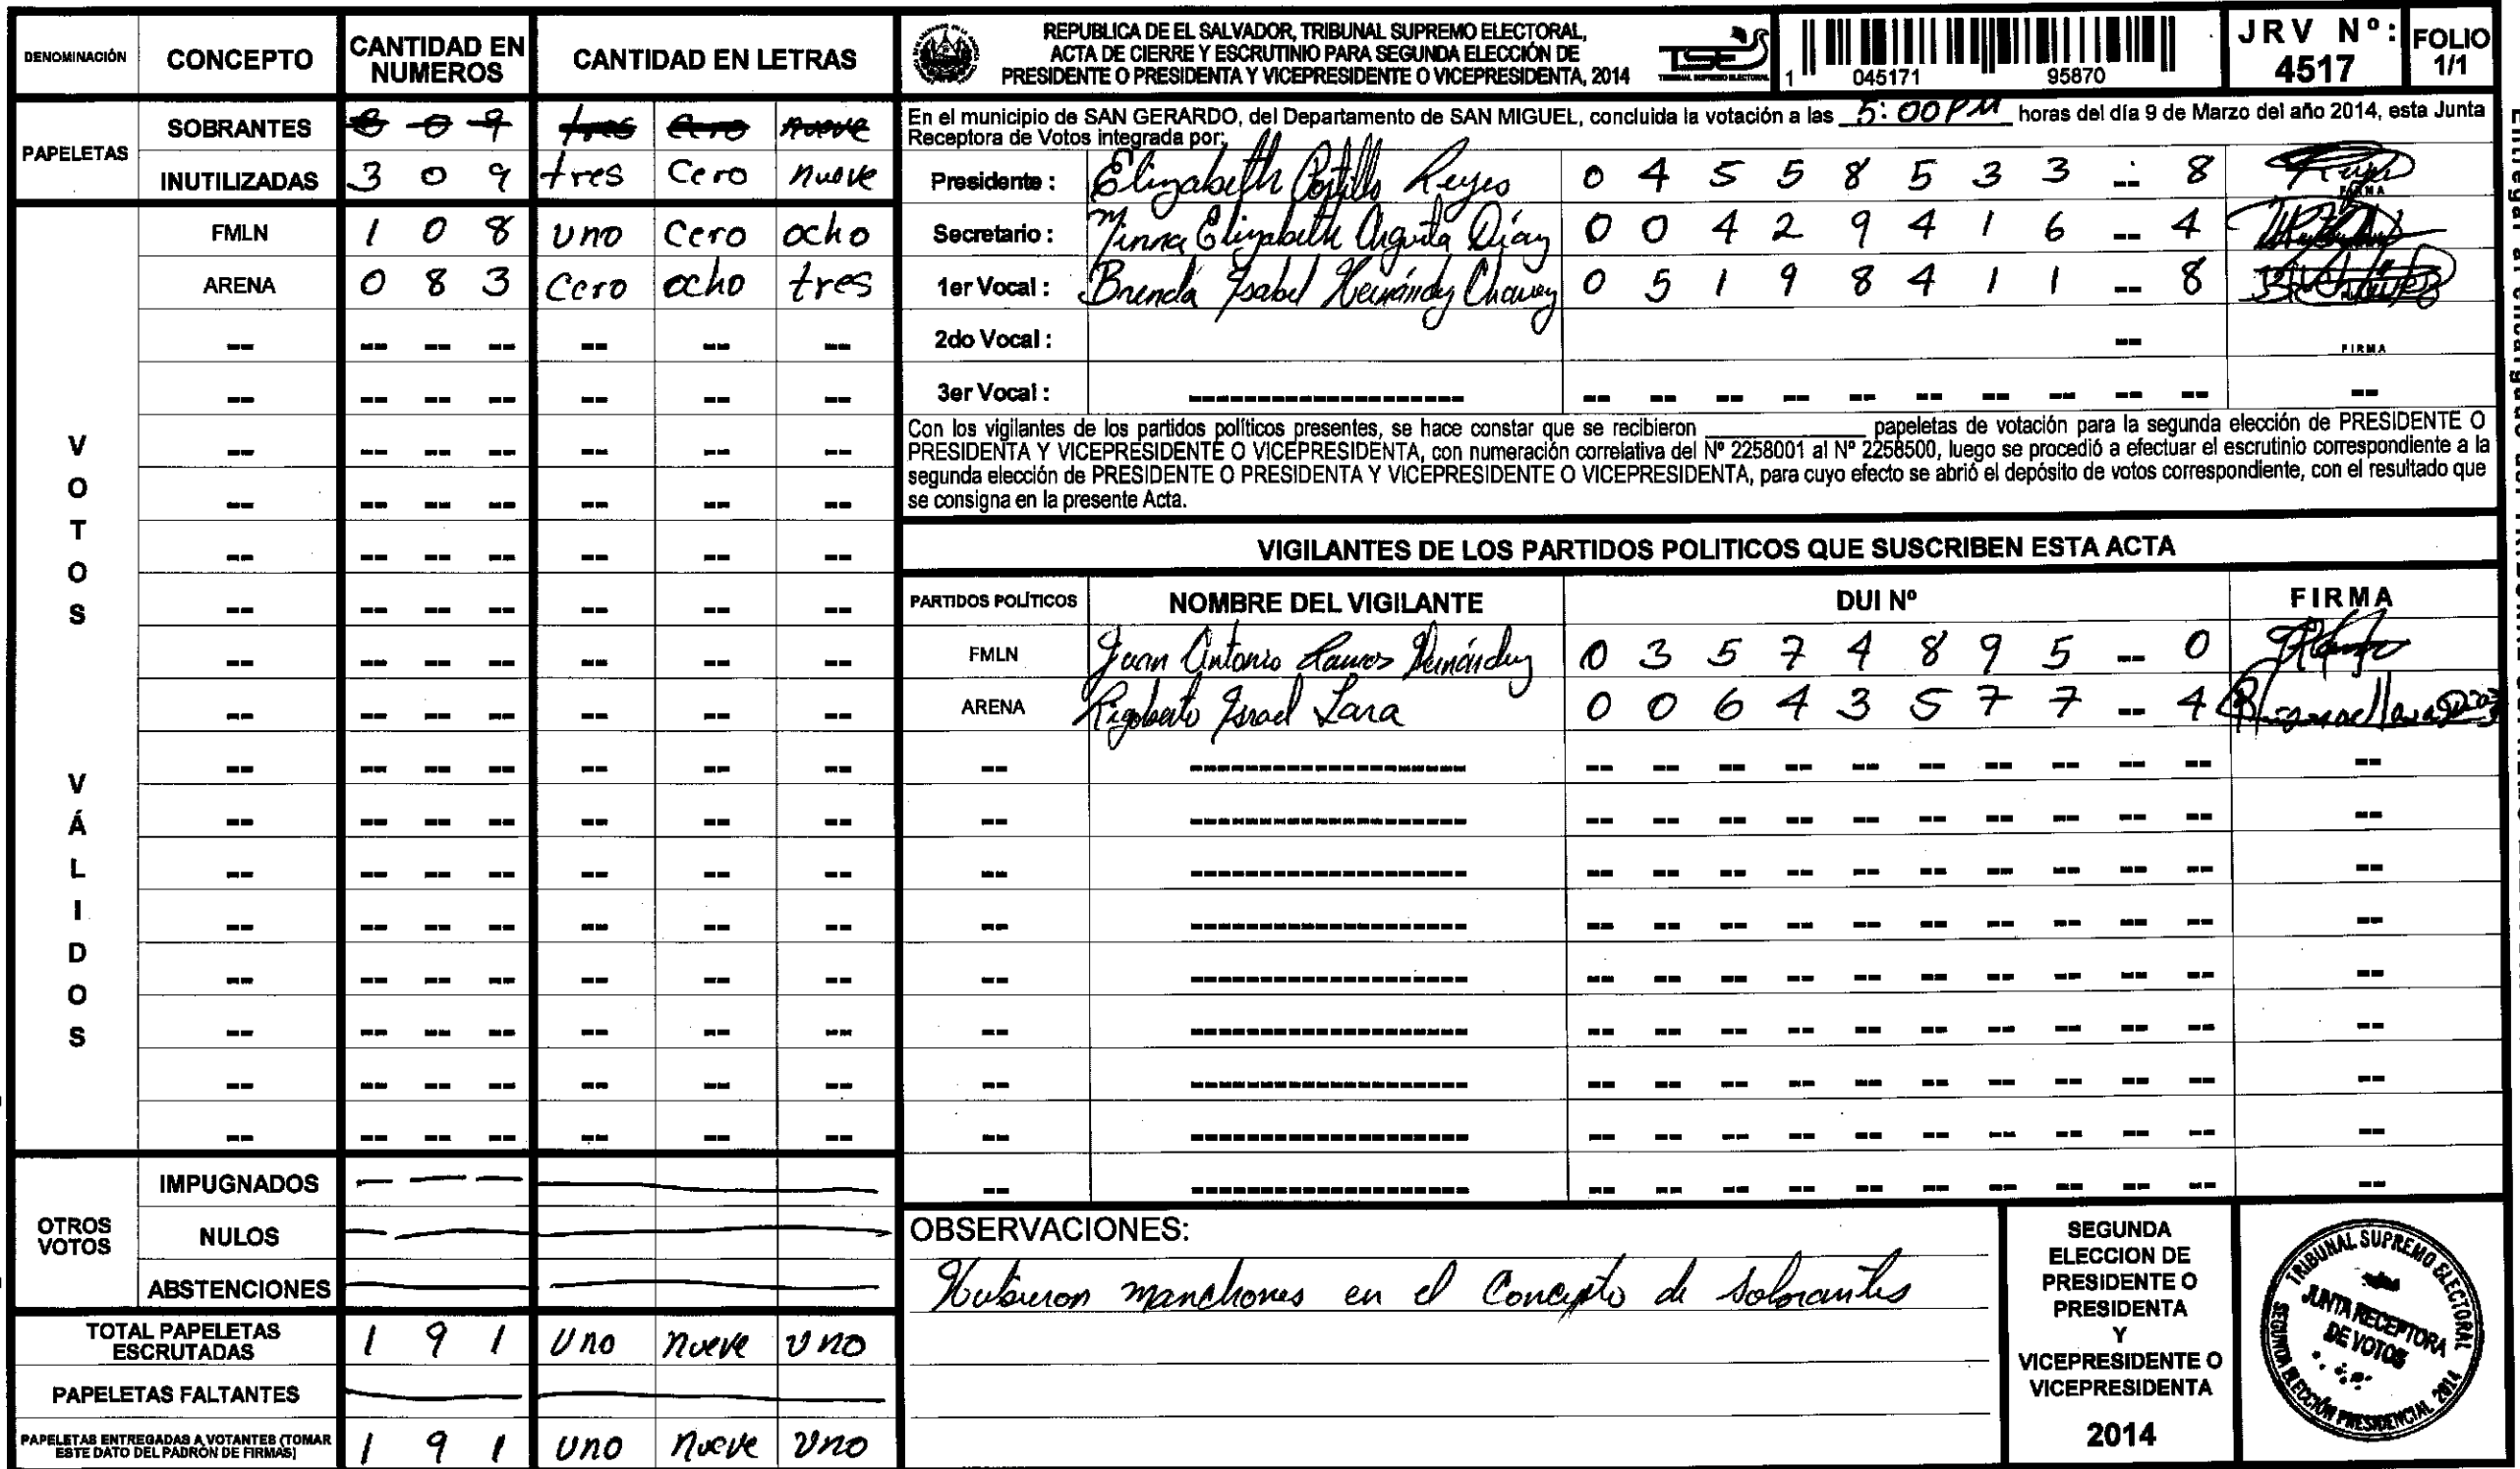 DENOMINACIÓN CONCEPTO CANTIDAD EN NUMEROS CANTIDAD EN LETRAS
PAPELETAS
SOBRANTES 3 0 9 tres Cero nueve
INUTILIZADAS 3 0 9 tres Cero nueve
VOTOS VÁLIDOS
FMLN 1 0 8 uno Cero ocho
ARENA 0 8 3 Cero ocho tres
OTROS VOTOS
IMPUGNADOS
NULOS
ABSTENCIONES
TOTAL PAPELETAS ESCRUTADAS 1 9 1 Uno nueve uno
PAPELETAS FALTANTES
PAPELETAS ENTREGADAS A VOTANTES (TOMAR ESTE DATO DEL PADRÓN DE FIRMAS) 1 9 1 uno nueve uno
REPUBLICA DE EL SALVADOR, TRIBUNAL SUPREMO ELECTORAL,
ACTA DE CIERRE Y ESCRUTINIO PARA SEGUNDA ELECCIÓN DE
PRESIDENTE O PRESIDENTA Y VICEPRESIDENTE O VICEPRESIDENTA, 2014
TSE
TRIBUNAL SUPREMO ELECTORAL
1 045171 95870
JRV Nº: 4517
FOLIO 1/1
En el municipio de SAN GERARDO, del Departamento de SAN MIGUEL, concluida la votación a las 5:00 PM horas del día 9 de Marzo del año 2014, esta Junta
Receptora de Votos integrada por:
Presidente : Elizabeth Portillo Reyes 0 4 5 5 8 5 3 3 -- 8
Secretario : Elizabeth Díaz 0 0 4 2 9 4 1 6 -- 4
1er Vocal : Brenda Isabel Hernández Chavez 0 5 1 9 8 4 1 1 -- 8
2do Vocal : -- FIRMA
3er Vocal :
Con los vigilantes de los partidos políticos presentes, se hace constar que se recibieron ____ papeletas de votación para la segunda elección de PRESIDENTE O
PRESIDENTA Y VICEPRESIDENTE O VICEPRESIDENTA, con numeración correlativa del Nº 2258001 al Nº 2258500, luego se procedió a efectuar el escrutinio correspondiente a la
segunda elección de PRESIDENTE O PRESIDENTA Y VICEPRESIDENTE O VICEPRESIDENTA, para cuyo efecto se abrió el depósito de votos correspondiente, con el resultado que
se consigna en la presente Acta.
VIGILANTES DE LOS PARTIDOS POLITICOS QUE SUSCRIBEN ESTA ACTA
PARTIDOS POLÍTICOS NOMBRE DEL VIGILANTE DUI Nº FIRMA
FMLN Juan Antonio Ramos Hernández 0 3 5 7 4 8 9 5 -- 0
ARENA Rigoberto Israel Lara 0 0 6 4 3 5 7 7 -- 4
OBSERVACIONES:
Hubieron manchones en el Concepto de Sobrantes
SEGUNDA
ELECCION DE
PRESIDENTE O
PRESIDENTA
Y
VICEPRESIDENTE O
VICEPRESIDENTA
2014
TRIBUNAL SUPREMO ELECTORAL
JUNTA RECEPTORA
DE VOTOS
SEGUNDA ELECCIÓN PRESIDENCIAL 2014